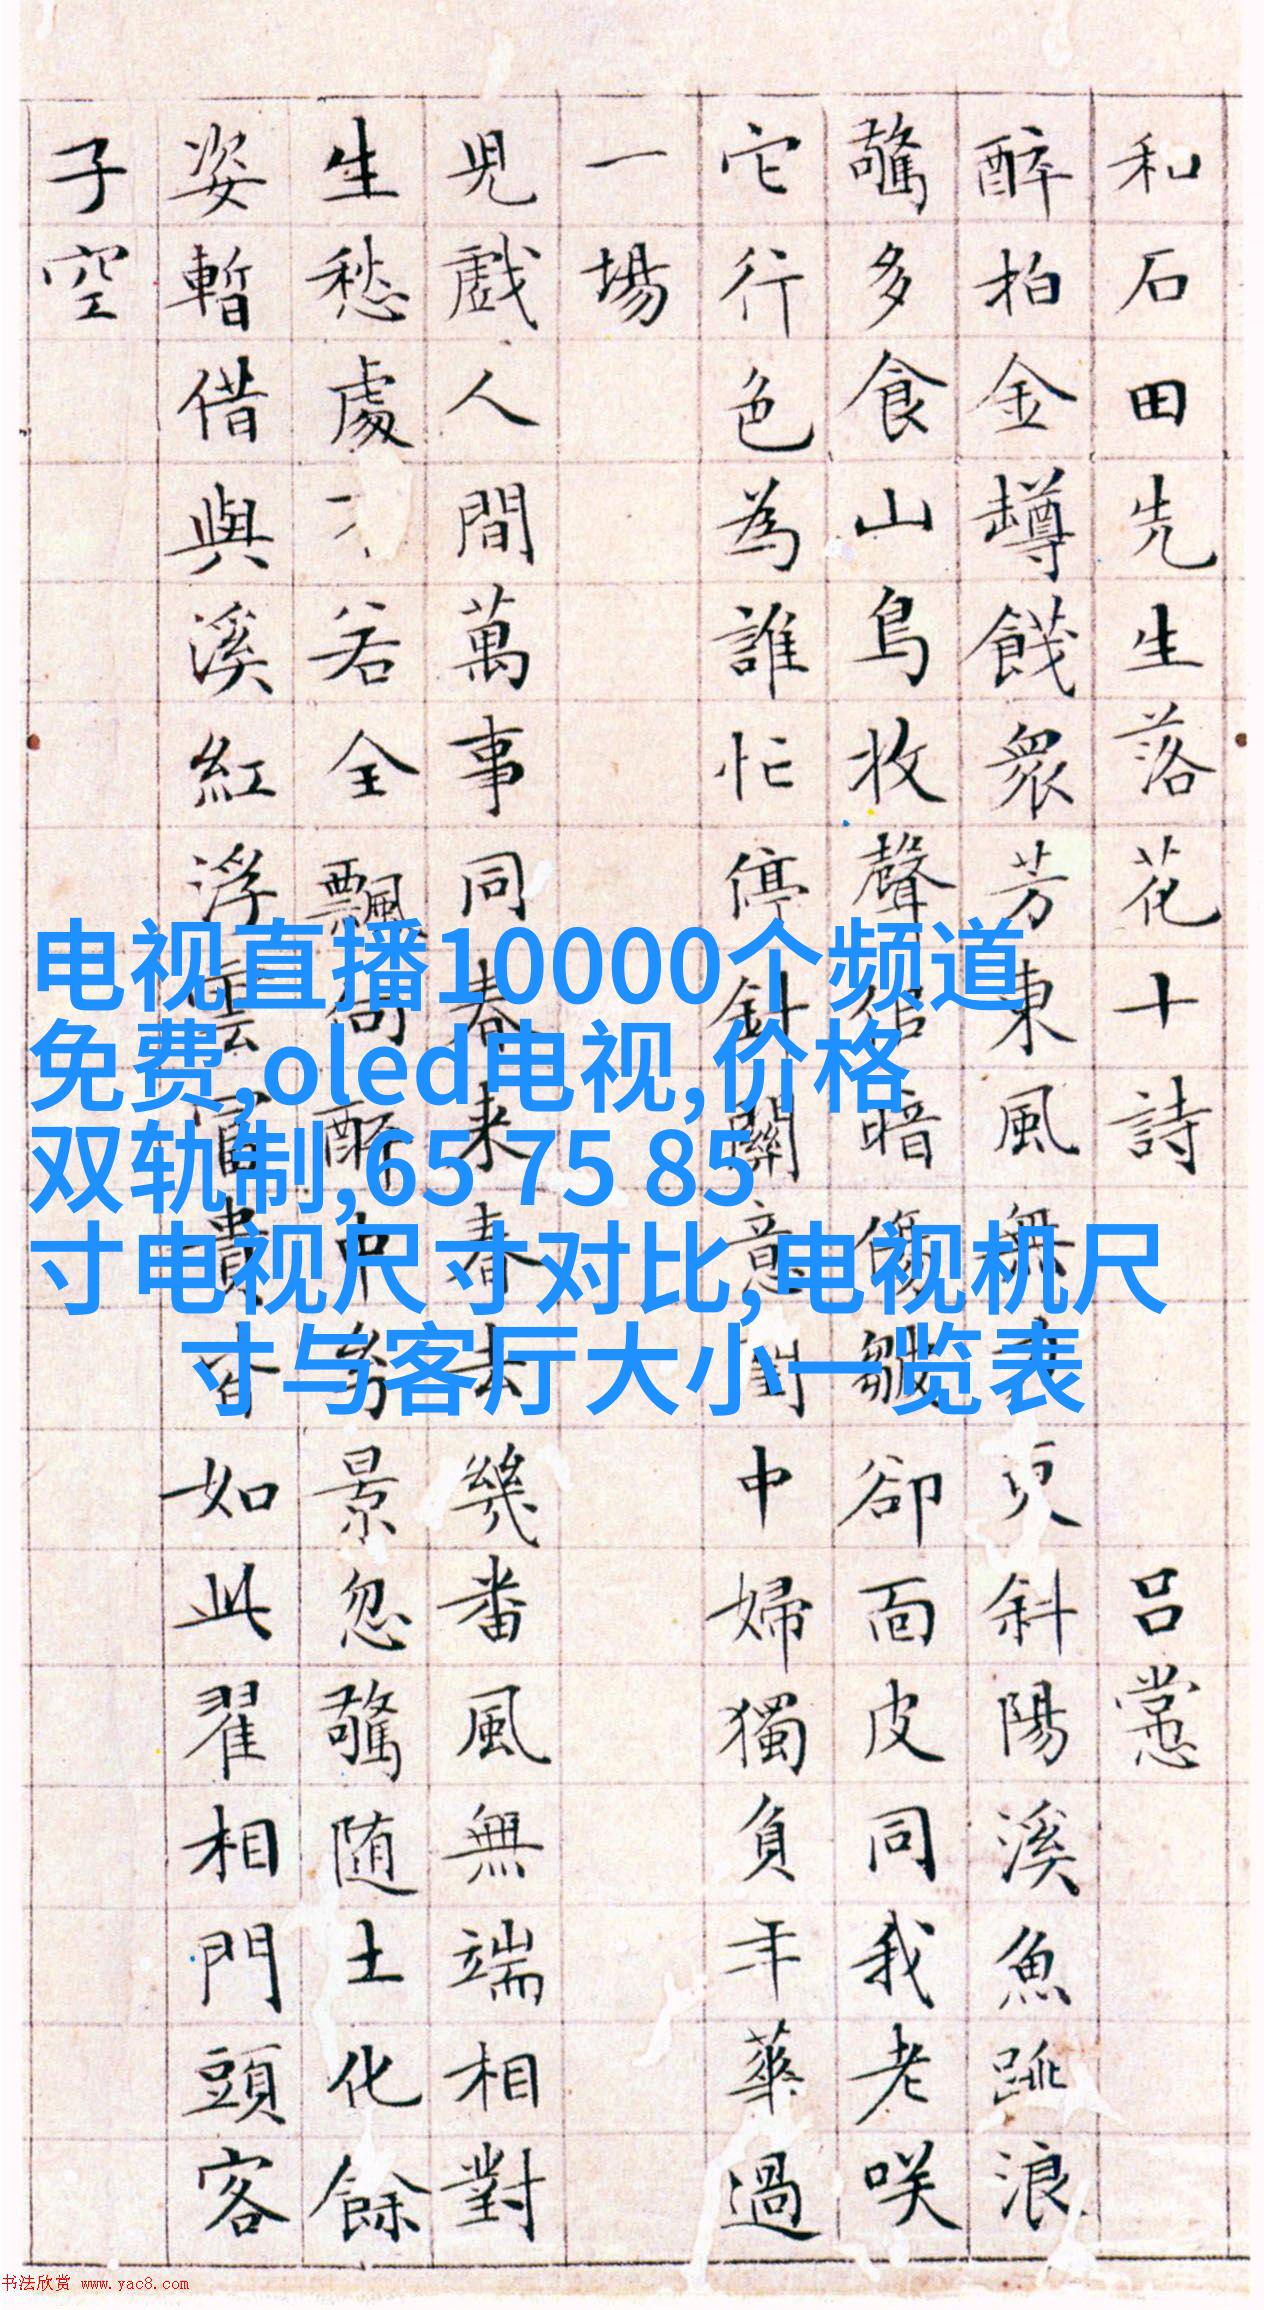 和石田先生落花十詩 呂
醉拍金罇餞眾芳東風無更斜陽溪魚跳浪
驚多食山鳥收聲暗傷皺卻面皮同我老咲
它行色為誰忙停針關意中婦獨負年華過
一場
兒戲人間萬事同春來春去幾番風無端相對
生愁處若全飄酣中景忽驚随土化餘
姿暫借與溪紅浮雲富貴皆如此翟相門頭客
子空
电视直播10000个频道
免费,oled电视,价格
双轨制,65 75 85
寸电视尺寸对比,电视机尺
寸与客厅大小一览表
书法欣赏 www.yac8.com